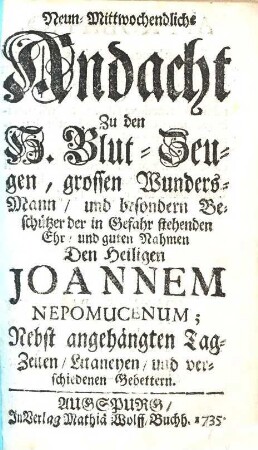 Neun-Mittwochendliche
Andacht
Zu den
H. Blut-Zeu-
gen, grossen Wunders-
Mann/ und besondern Be-
schützer der in Gefahr stehenden
Ehr/ und guten Nahmen
Den Heiligen
JOANNEM
NEPOMUCENUM;
Nebst angehängten Tag-
Zeiten/ Litaneyen/ und ver-
schiedenen Gebettern.
AUGSPURG/
In Verlag Mathiä Wolff, Buchh. 1735.